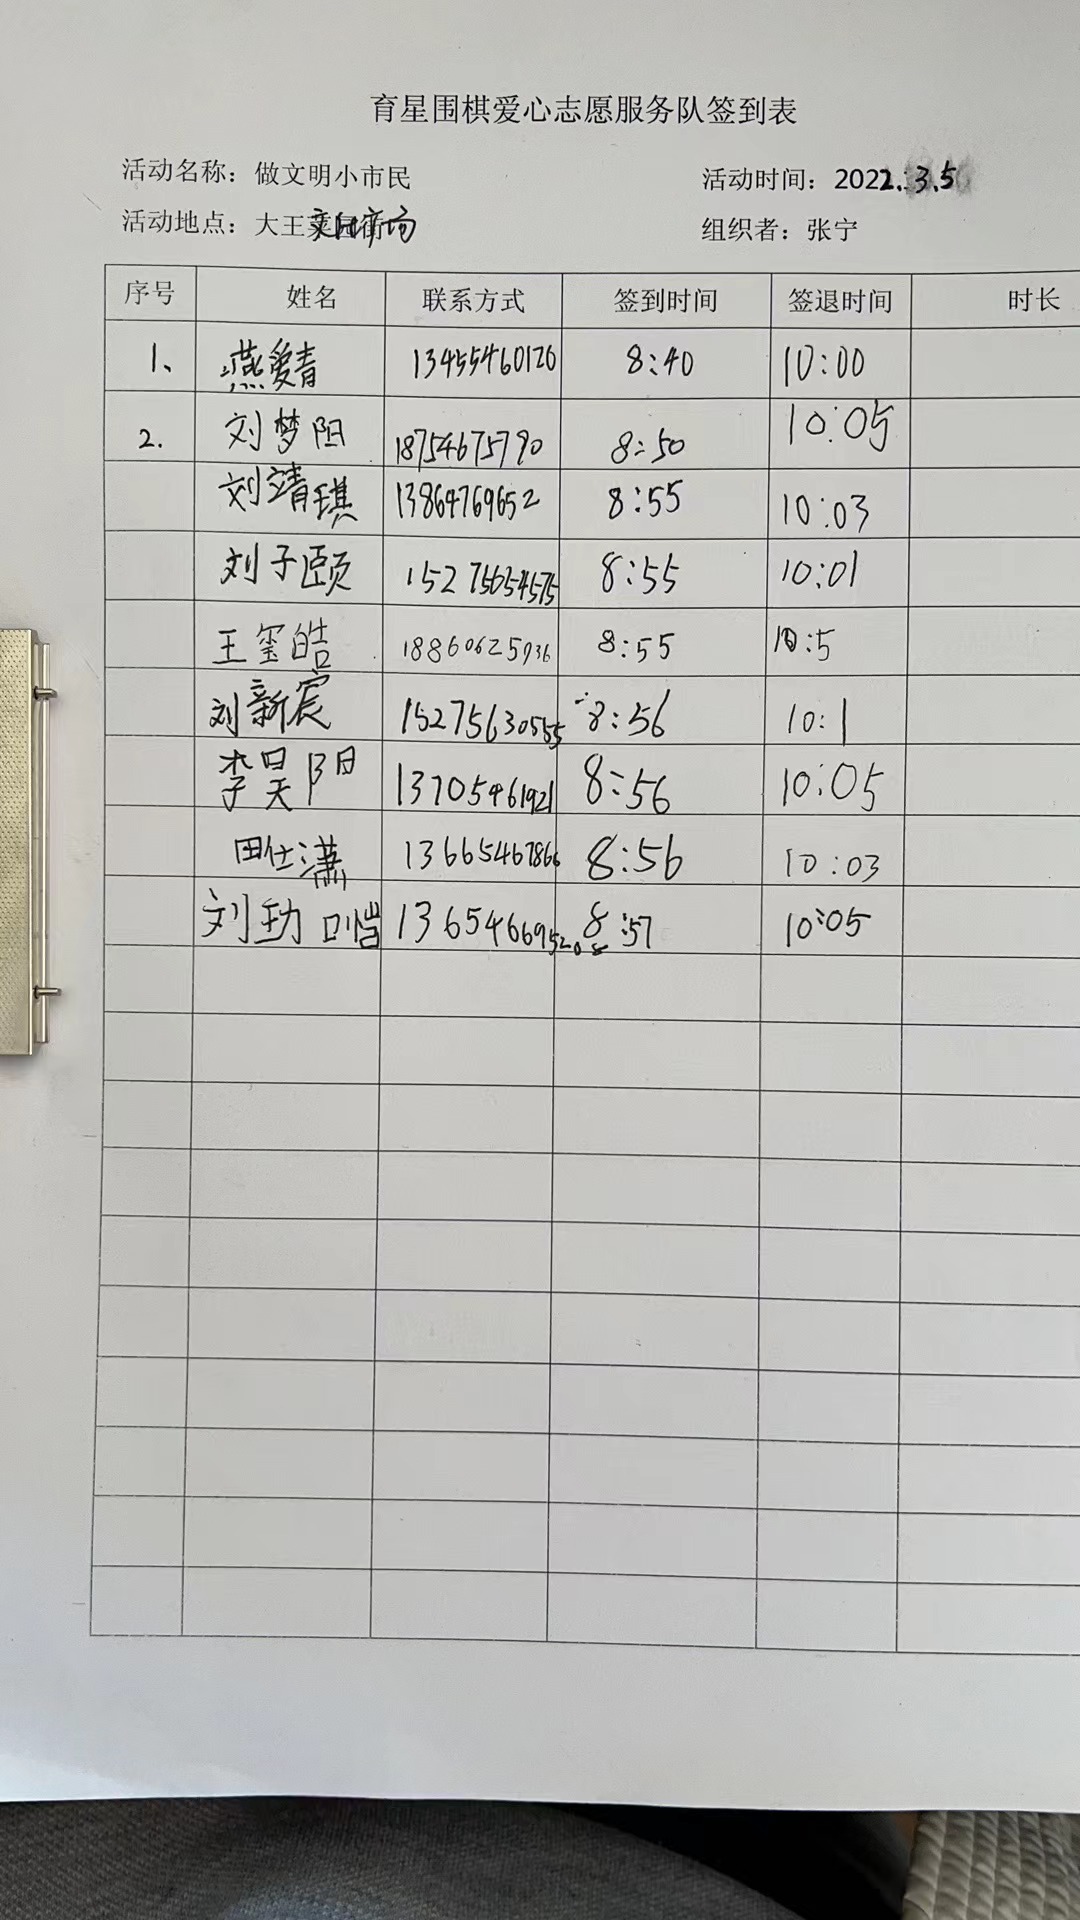 育星围棋爱心志愿服务队签到表
活动名称：做文明小市民 活动时间：2022.3.5
活动地点：大王文化广场 组织者：张宁
序号 姓名 联系方式 签到时间 签退时间 时长
1、 燕爱青 13455460126 8:40 10:00
2. 刘梦阳 18754675790 8:50 10:05
刘靖琪 13864769652 8:55 10:03
刘子颐 15275654575 8:55 10:01
王玺皓 18860625936 8:55 10:5
刘新宸 15275630555 8:56 10:1
李昊阳 13705461921 8:56 10:05
田仕潇 13665467866 8:56 10:03
刘 8:57 10:05